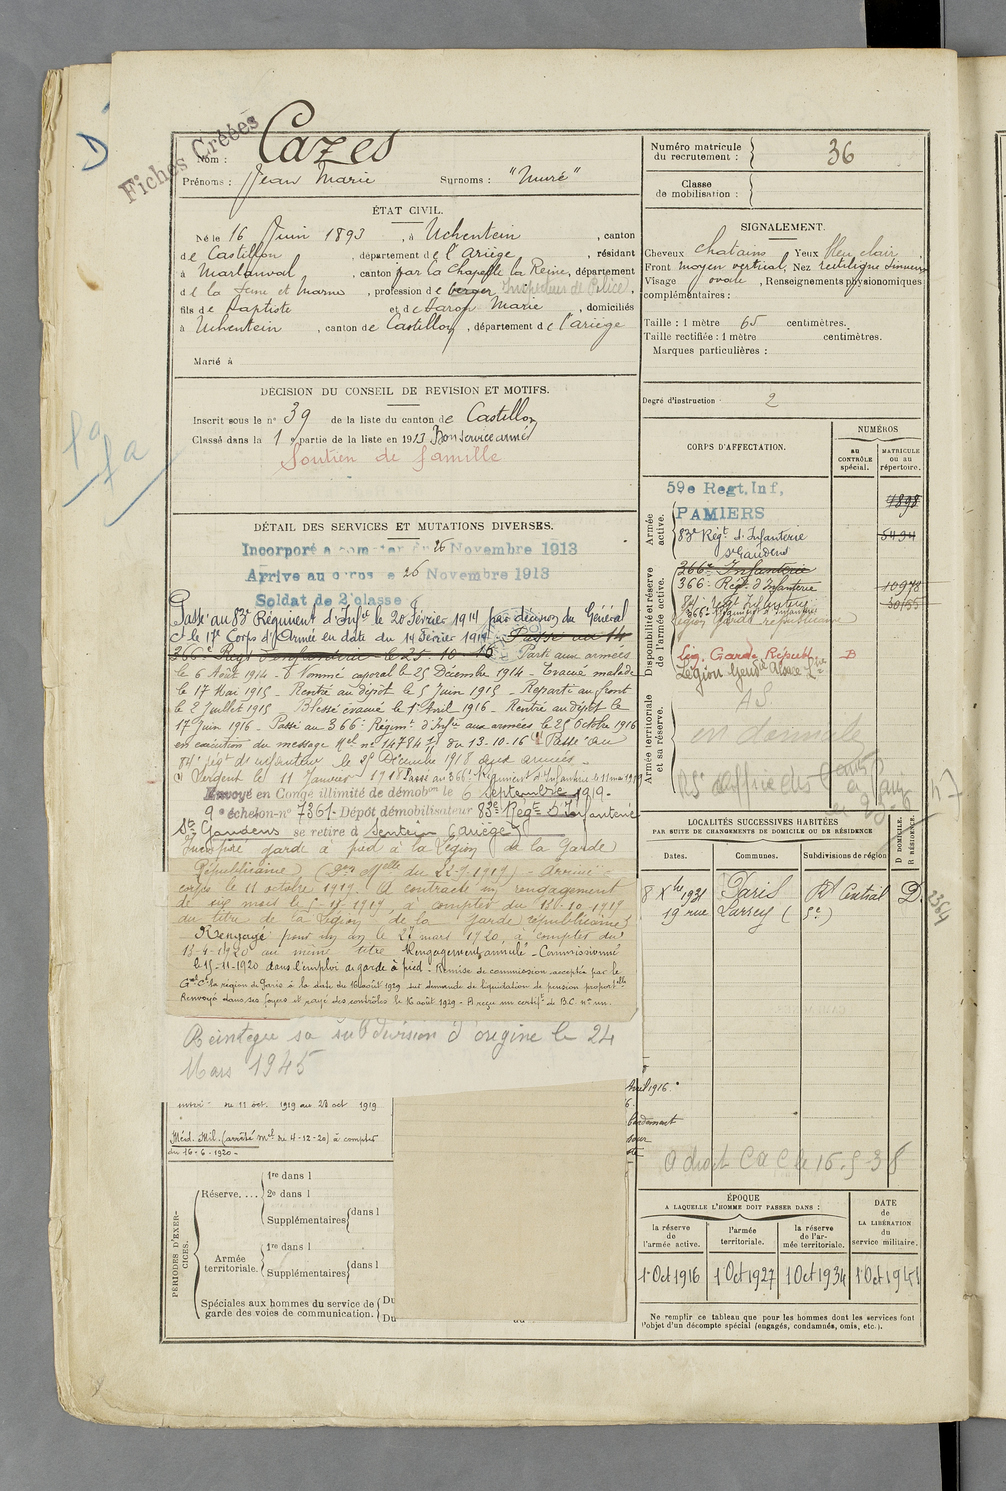 D
Fiches Créées
Nom : Cazes
Prénoms : Jean Marie Surnoms : "Muré"
ÉTAT CIVIL.
Né le 16 Juin 1893, à Uchentein, canton
de Castillon, département de l'Ariège, résidant
à Marlanval, canton par la Chapelle la Reine, département
de la Seine et Marne, profession de berger
fils de Baptiste et de Marie, domiciliés
à Uchentein, canton de Castillon, département de l'Ariège
Marié à
DÉCISION DU CONSEIL DE REVISION ET MOTIFS.
Inscrit sous le n° 39 de la liste du canton de Castillon
Classé dans la 1e partie de la liste en 1913 Bon service armé
Soutien de famille
DÉTAIL DES SERVICES ET MUTATIONS DIVERSES.
Incorporé à compter du 26 Novembre 1913
Arrivé au corps le 26 Novembre 1913
Soldat de 2e classe
Passé au 83e Régiment d'Infie le 20 Février 1914 par décision du Général
Ct le 17e Corps d'Armée en date du 14 Février 1914 - Passé au
366e Regt d'infanterie le 25-10-16 Parti aux armées
le 6 Août 1914 - Nommé caporal le 25 Décembre 1914 - Evacué malade
le 17 Mai 1915 - Rentré au dépôt le 5 Juin 1915 - Reparti au front
le 2 Juillet 1915 - Blessé évacué le 1er Avril 1916 - Rentré au dépôt le
17 Juin 1916 - Passé au 366e Régimt d'Infie aux armées le 25 Octobre 1916
en exécution du message Mel n° 14784 du 13-10-16 (1) Passé au
84e régt de infanterie le 25 Décembre 1918 aux armées.
(1) Sergent le 11 Janvier 1918 Passé au 366e Régiment d'Infanterie le 11 mai 1919
Envoyé en Congé illimité de démobon le 6 Septembre 1919.
9e échelon n° 7361 - Dépôt démobilisateur 83e Régt D'Infanterie
St Gaudens se retire à Sentein (Ariège)
Incorporé garde à pied à la Légion de la Garde
Républicaine (Don Melle du 22-9-1919) - Arrivé au
corps le 11 octobre 1919. A contracté un rengagement
de six mois le 5-11-1919 à compter du 13-10-1919
au titre de la Légion de la garde républicaine
Rengagé pour un an le 27 mars 1920, à compter du
13-4-1920 au même titre Rengagement annulé - Commissionné
le 15-11-1920 dans l'emploi de garde à pied - Remise de commission acceptée par le
Gal Ct la région de Paris à la date du 16 août 1929 sur demande de liquidation de pension proportelle
Renvoyé dans ses foyers et rayé des contrôles le 16 août 1929 - A reçu un certift de B.C.
Réintégré sa subdivision d'origine le 24
Mars 1945
du 11 oct. 1919 au 23 oct 1919
Méd. Mil. (arrêté mel du 4-12-20) à compter
du 16-6-1920 -
PÉRIODES D'EXERCICES.
Réserve.... 1re dans l
2e dans l
Supplémentaires dans l
Armée territoriale. 1re dans l
Supplémentaires dans l
Spéciales aux hommes du service de Du
garde des voies de communication. Du
Numéro matricule du recrutement : 36
Classe de mobilisation :
SIGNALEMENT.
Cheveux chatains Yeux bleu clair
Front moyen vertical, Nez rectiligne sinueux
Visage ovale, Renseignements physionomiques
complémentaires :
Taille : 1 mètre 65 centimètres.
Taille rectifiée : 1 mètre centimètres.
Marques particulières :
Degré d'instruction : 2
CORPS D'AFFECTATION.
NUMÉROS
AU CONTRÔLE spécial.
MATRICULE ou au répertoire.
Armée active.
59e Regt. Inf,
PAMIERS
4898
83e Régt d'Infanterie
St Gaudens
5494
Disponibilité et réserve de l'armée active.
366e Infanterie
366e Régt d'Infanterie 10978
Légion garde républicaine
Lég. Garde Républ. B
Légion Gendie Alsace Lne
Armée territoriale et sa réserve.
AS
en domicile
LOCALITÉS SUCCESSIVES HABITÉES
PAR SUITE DE CHANGEMENTS DE DOMICILE OU DE RÉSIDENCE
D DOMICILE.
R RÉSIDENCE.
Dates. Communes. Subdivisions de région
8 Xbre 1931 Paris Rt Central D.
19 rue Larrey (5e)
2364
Avril 1916.
A droit C a C le 16-5-38
ÉPOQUE
A LAQUELLE L'HOMME DOIT PASSER DANS :
la réserve de l'armée active.
l'armée territoriale.
la réserve de l'armée territoriale.
DATE de LA LIBÉRATION du service militaire.
1er Oct 1916 1 Oct 1927 1 Oct 1934 1er Oct 1941
Ne remplir ce tableau que pour les hommes dont les services font
l'objet d'un décompte spécial (engagés, condamnés, omis, etc.).